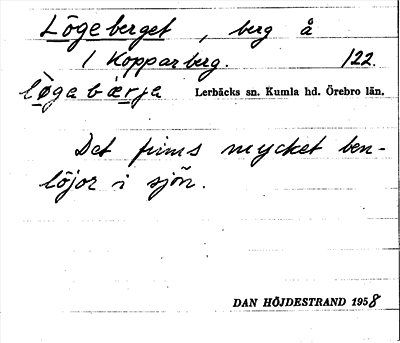 Lögeberget, berg å
1 Kopparberg. 122.
lögabærja Lerbäcks sn. Kumla hd. Örebro län.
Det finns mycket ben-
löjor i sjön.
DAN HÖJDESTRAND 1958